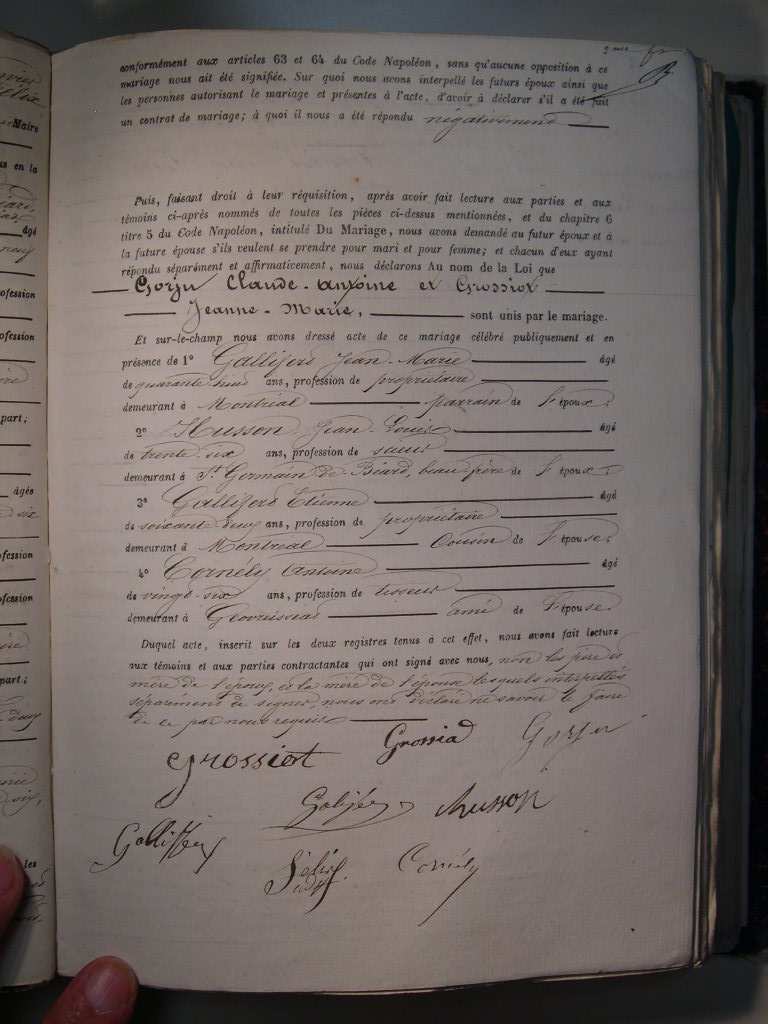 2me ft
conformément aux articles 63 et 64 du Code Napoléon, sans qu'aucune opposition à ce
mariage nous ait été signifiée. Sur quoi nous avons interpellé les futurs époux ainsi que
les personnes autorisant le mariage et présentes à l'acte, d'avoir à déclarer s'il a été fait
un contrat de mariage; à quoi il nous a été répondu négativement
Puis, faisant droit à leur réquisition, après avoir fait lecture aux parties et aux
témoins ci-après nommés de toutes les pièces ci-dessus mentionnées, et du chapitre 6
titre 5 du Code Napoléon, intitulé Du Mariage, nous avons demandé au futur époux et à
la future épouse s'ils veulent se prendre pour mari et pour femme; et chacun d'eux ayant
répondu séparément et affirmativement, nous déclarons Au nom de la Loi que
Gorju Claude-Antoine et Grossiot
Jeanne-Marie, sont unis par le mariage.
Et sur-le-champ nous avons dressé acte de ce mariage célébré publiquement et en
présence de 1° Gallifero Jean-Marie âgé
de quarante ans, profession de propriétaire
demeurant à Montréal parrain de l'époux;
2° Husson Jean Louis âgé
de trente six ans, profession de
demeurant à St Germain de Béard, beau frère de l'époux;
3° Gallifero Etienne âgé
de soixante deux ans, profession de propriétaire
demeurant à Montréal Cousin de l'épouse;
4° Cornély Antoine âgé
de vingt-six ans, profession de tisseur
demeurant à Geovreissiat ami de l'épouse
Duquel acte, inscrit sur les deux registres tenus à cet effet, nous avons fait lecture
aux témoins et aux parties contractantes qui ont signé avec nous, non les père et
mère de l'époux, et la mère de l'épouse lesquels interpellés
séparément de signer, nous ont déclaré ne savoir le faire
de ce par nous requis
Grossiot Grossiat Gorju
Husson
Cornély
Maire
us en la
âgé
profession
ofession
part;
âgés
ofession
fession
part;
les